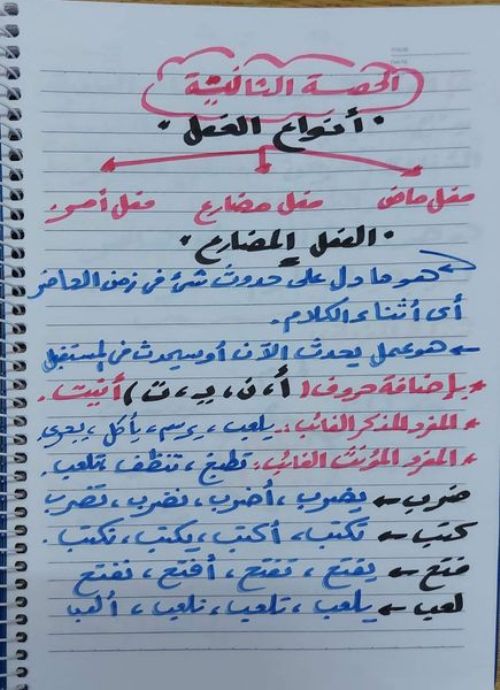 الحصة الثالثة
• أنواع الفعل •
فعل ماض فعل مضارع فعل أمر
• الفعل المضارع •
هو ما دل على حدوث شئ فى زمن الحاضر
أى أثناء الكلام.
← هو عمل يحدث الآن أو سيحدث فى المستقبل
* بإضافة حروف (أ، ن، ي، ت) أنيت.
* المفرد المذكر الغائب: يلعب، يرسم، يأكل، يجرى.
* المفرد المؤنث الغائب: تطبخ، تنظف، تلعب.
ضرب ← يضرب، أضرب، نضرب، تضرب
كتب ← تكتب، أكتب، يكتب، نكتب.
فتح ← يفتح، تفتح، أفتح، نفتح
لعب ← يلعب، تلعب، نلعب، ألعب